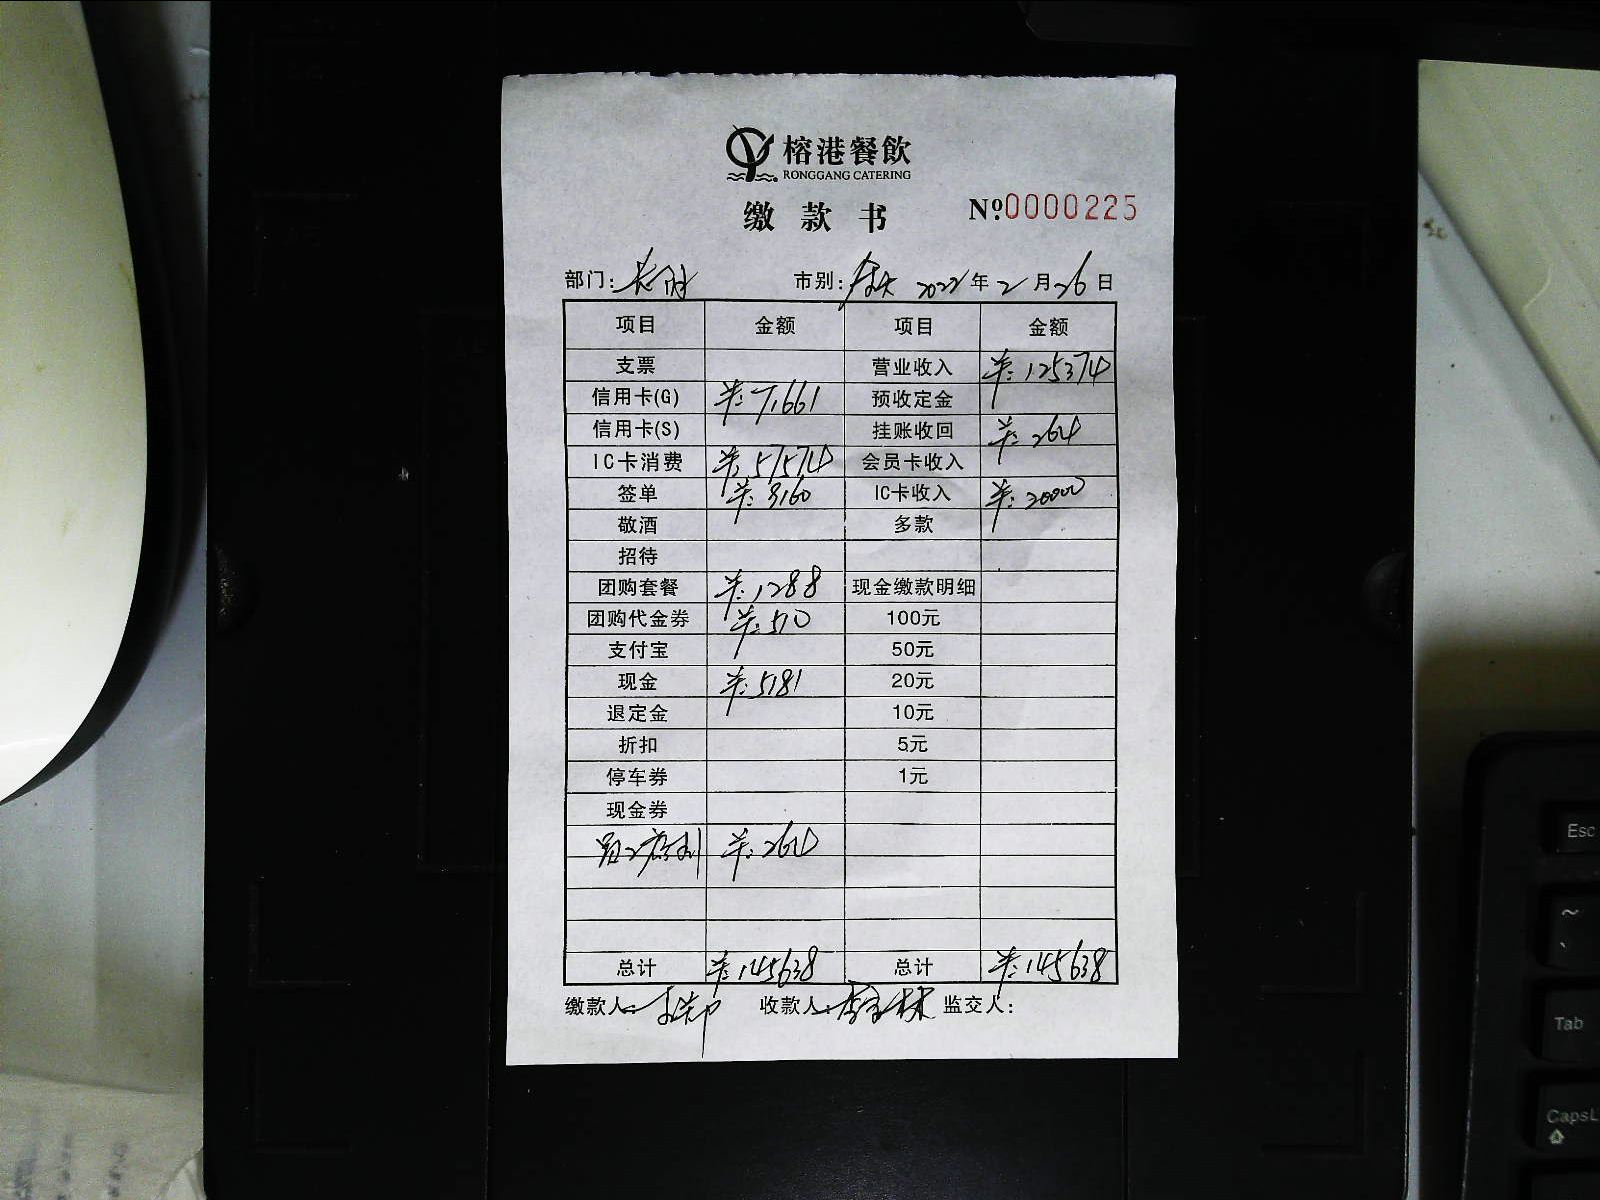 榕港餐飲
RONGGANG CATERING
缴款书 №0000225
部门: 市别: 2022年2月26日
项目 金额 项目 金额
支票 营业收入 ¥:125374
信用卡(G) ¥:77661 预收定金
信用卡(S) 挂账收回 ¥:264
IC卡消费 ¥:57574 会员卡收入
签单 ¥:3160 IC卡收入 ¥:20000
敬酒 多款
招待
团购套餐 ¥:1288 现金缴款明细
团购代金券 ¥:510 100元
支付宝 50元
现金 ¥:5181 20元
退定金 10元
折扣 5元
停车券 1元
现金券
¥:264
总计 ¥:145638 总计 ¥:145638
缴款人: 收款人: 监交人:
Esc
~
Tab
CapsL